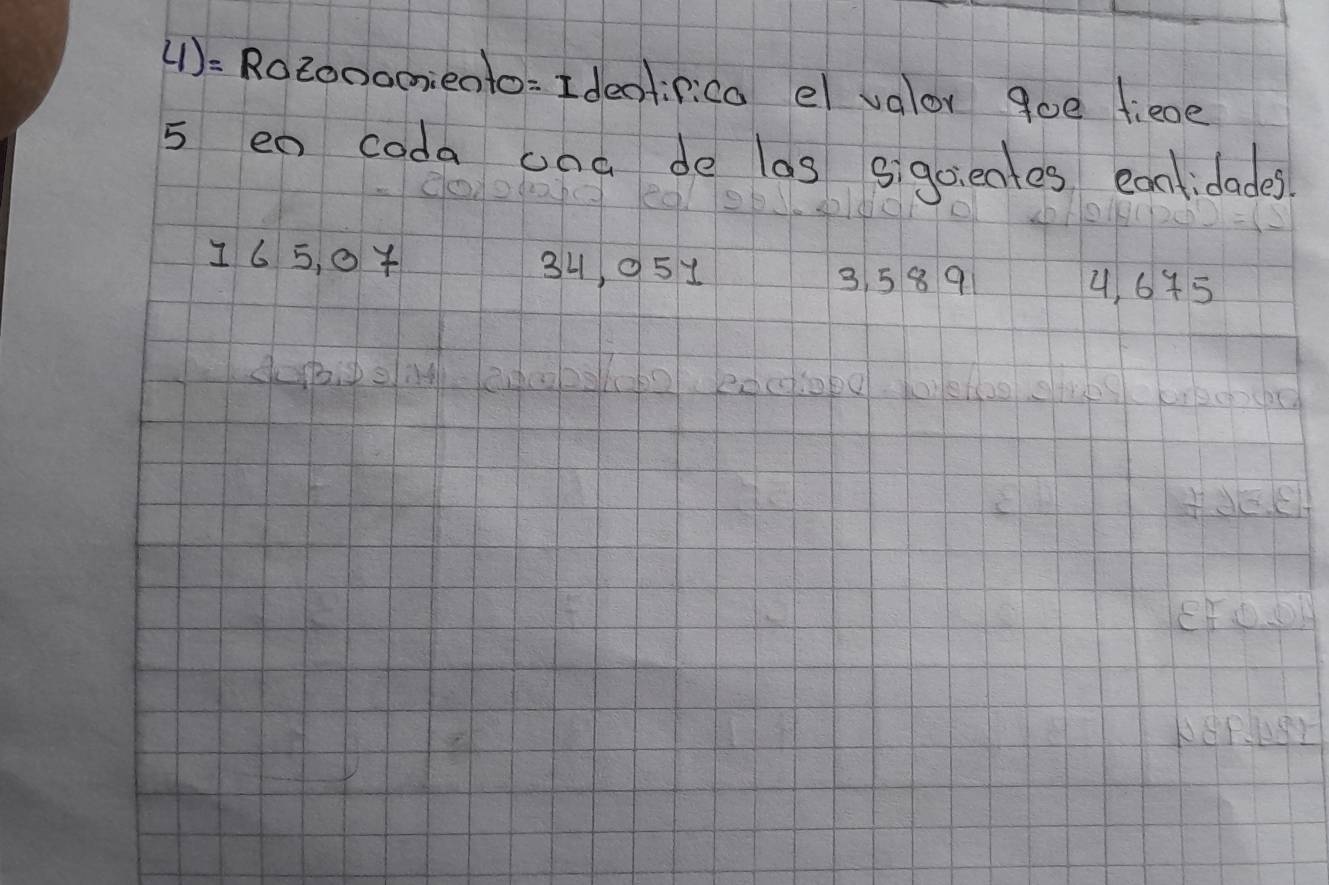 4)= Razonamiento= Identifica el valor que tiene
5 en cada una de las siguientes cantidades.
165,07 34,051 3,589 4,675